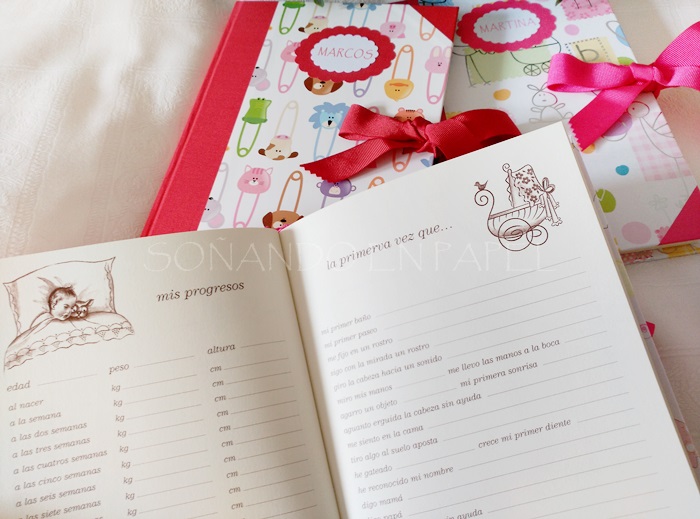 MARCOS
MARTINA
SOÑANDO EN PAPEL
mis progresos
edad peso altura
al nacer kg cm
a la semana kg cm
a las dos semanas kg cm
a las tres semanas kg cm
a las cuatros semanas kg cm
a las cinco semanas kg cm
a las seis semanas kg cm
a las siete semanas kg cm
la primerva vez que...
mi primer baño
mi primer paseo
me fijo en un rostro
sigo con la mirada un rostro
giro la cabeza hacia un sonido
miro mis manos me llevo las manos a la boca
agarro un objeto mi primera sonrisa
aguanto erguida la cabeza sin ayuda
me siento en la cama
tiro algo al suelo aposta
he gateado crece mi primer diente
he reconocido mi nombre
digo mamá
papá
sin ayuda